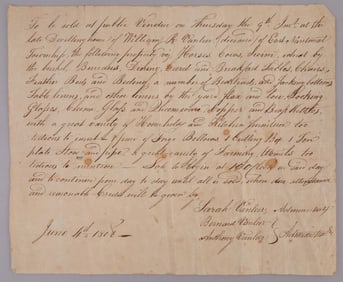 To be sold at public Vendue on Thursday the 9th Inst. at the
late Dwelling house of William R. Vanleer, deceased of East Nantmeal
Township, the following property viz Horses Cows Swine, wheat by
the bushel, Bureau, Dining, Card and Breakfast Tables, Chairs,
Feather Beds and Bedding, a number of Bedsteads, and
Table linnens, and other linnens by the yard, flax and tow, Looking
Glasses, China, Glass and Queensware, Copper and Brass Kettles,
with a great variety of Household and Kitchen furniture too
tedious to insert, a pair of forge Bellows, a Cutting Box 1 Ten
plate Stove and pipe, & great variety of Farming Utensils too
tedious to mention — Sale to begin at 10 o'Clock on said day
and to continue from day to day until all is sold, when due attendance
and reasonable Credit will be given by
Sarah Vanleer
Bernard Vanleer
Anthony Vanleer
June 4th 1808 —